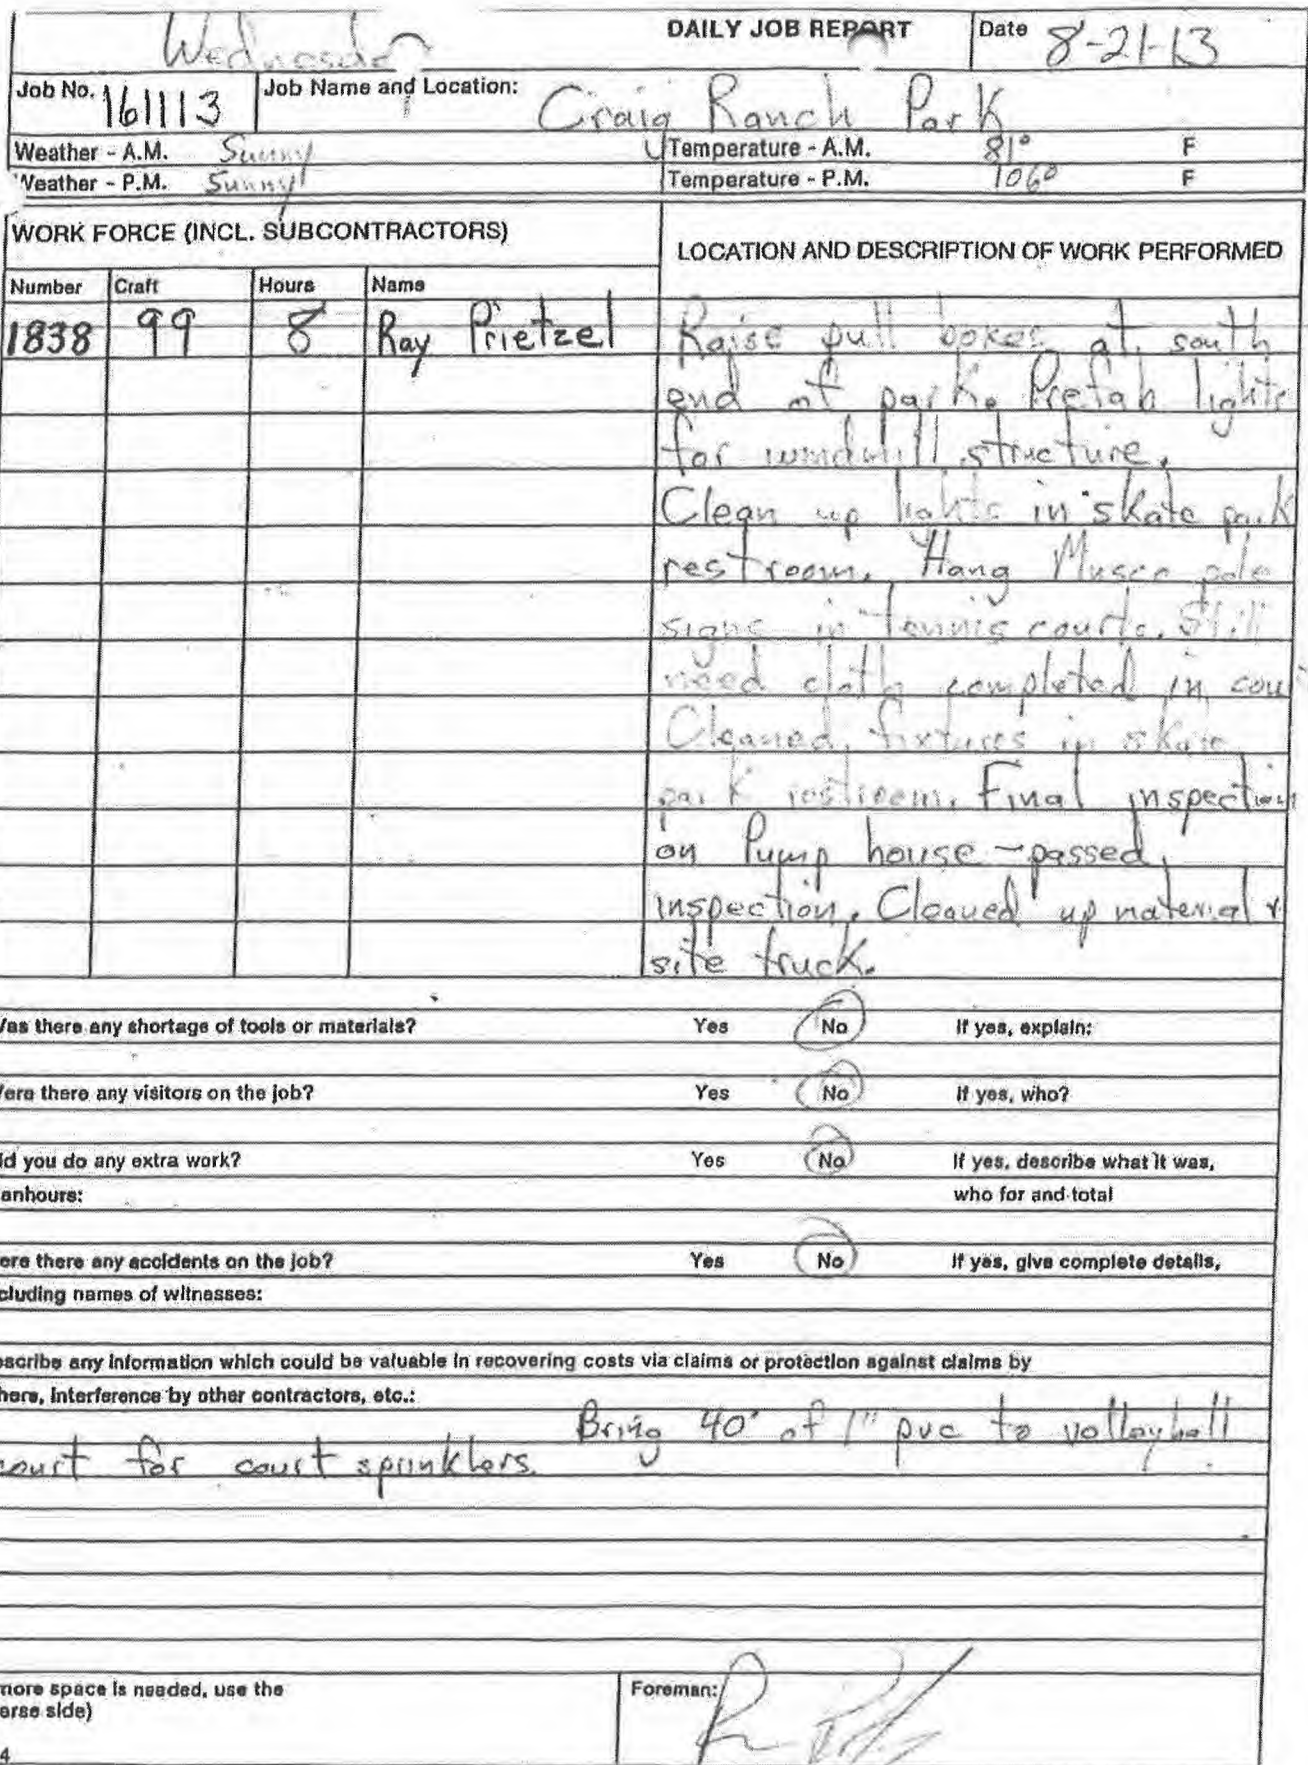 Wednesday DAILY JOB REPORT Date 8-21-13
Job No. 161113 Job Name and Location: Craig Ranch Park
Weather - A.M. Sunny Temperature - A.M. 81° F
Weather - P.M. Sunny Temperature - P.M. 106° F
WORK FORCE (INCL. SUBCONTRACTORS) LOCATION AND DESCRIPTION OF WORK PERFORMED
Number Craft Hours Name
1838 99 8 Ray Prietzel Raise pull boxes at south
end of park. Prefab lights
for windmill structure.
Clean up lights in skate park
restroom. Hang Musco pole
signs in tennis courts. Still
need cloth completed in cou
Cleaned fixtures in skate
park restroom. Final inspection
on Pump house - passed
inspection. Cleaned up material &
site truck.
Was there any shortage of tools or materials? Yes No If yes, explain:
Were there any visitors on the job? Yes No If yes, who?
id you do any extra work? Yes No If yes, describe what it was,
anhours: who for and total
ere there any accidents on the job? Yes No If yes, give complete details,
cluding names of witnesses:
escribe any information which could be valuable in recovering costs via claims or protection against claims by
hers, interference by other contractors, etc.:
Bring 40' of 1" pvc to volleyball
court for court sprinklers.
more space is needed, use the Foreman:
erse side)
4